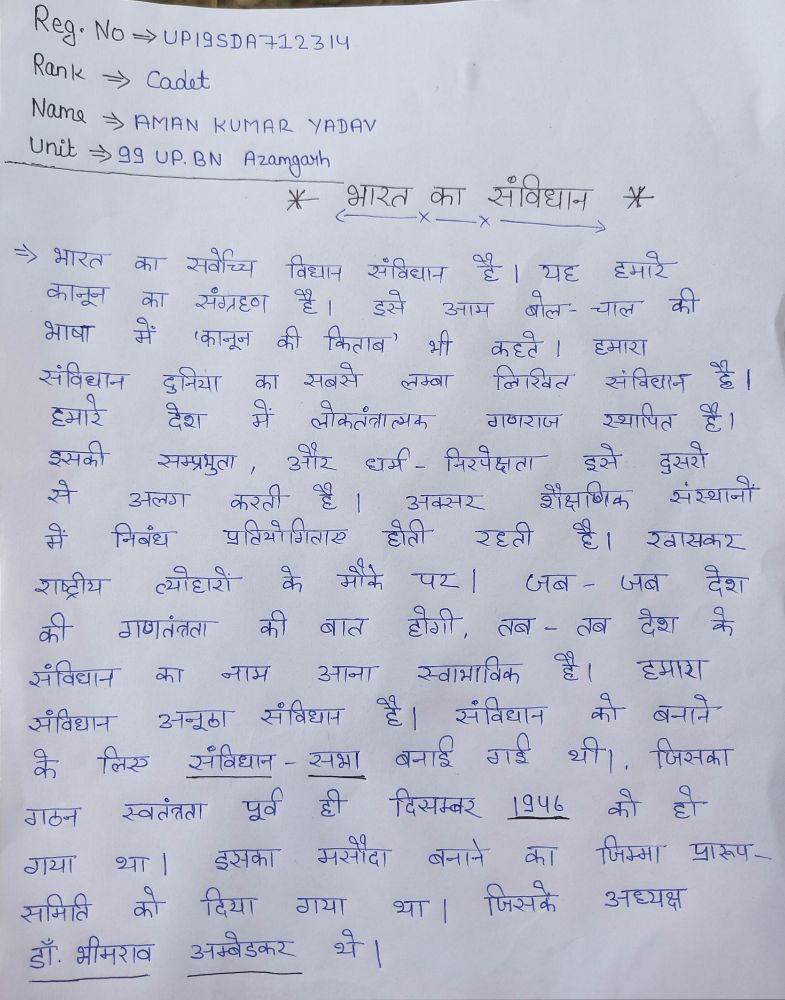 Reg. No ⇒ UP19SDA712314
Rank ⇒ Cadet
Name ⇒ AMAN KUMAR YADAV
Unit ⇒ 99 UP.BN Azamgarh
* भारत का संविधान *
⇒ भारत का सर्वोच्च विधान संविधान है। यह हमारे
कानून का संग्रहण है। इसे आम बोल-चाल की
भाषा में 'कानून की किताब' भी कहते। हमारा
संविधान दुनिया का सबसे लम्बा लिखित संविधान है।
हमारे देश में लोकतंत्रात्मक गणराज स्थापित है।
इसकी सम्प्रभुता, और धर्म-निरपेक्षता इसे दुसरो
से अलग करती है। अक्सर शैक्षणिक संस्थानों
में निबंध प्रतियोगिताए होती रहती है। खासकर
राष्ट्रीय त्योहारों के मौके पर। जब-जब देश
की गणतंत्रता की बात होगी, तब-तब देश के
संविधान का नाम आना स्वाभाविक है। हमारा
संविधान अनूठा संविधान है। संविधान को बनाने
के लिए संविधान-सभा बनाई गई थी।, जिसका
गठन स्वतंत्रता पूर्व ही दिसम्बर 1946 को हो
गया था। इसका मसौदा बनाने का जिम्मा प्रारूप-
समिति को दिया गया था। जिसके अध्यक्ष
डॉ. भीमराव अम्बेडकर थे।